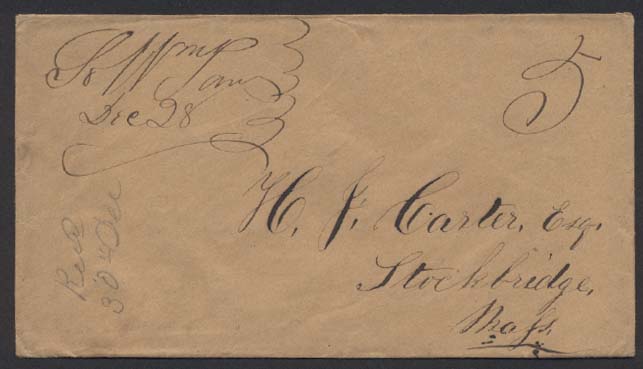 So
Dec 28
5
H. F. Carter, Esq.
Stockbridge,
Mass.
Recd
30th Dec